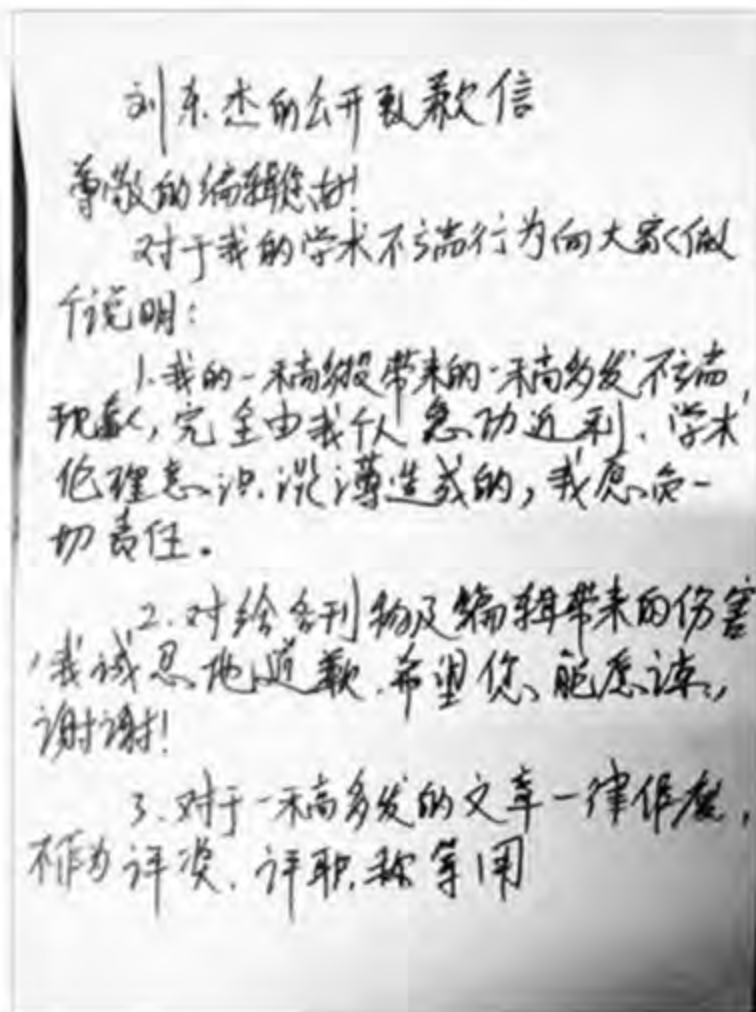 刘东杰的公开致歉信
尊敬的编辑您好!
对于我的学术不端行为向大家做
个说明:
1.我的一稿多投带来的一稿多发不端
现象,完全由我个人急功近利、学术
伦理意识淡薄造成的,我愿负一
切责任。
2.对给各刊物及编辑带来的伤害
,我诚恳地道歉.希望您能原谅,
谢谢!
3.对于一稿多发的文章一律作废,
不作为评奖、评职称等用